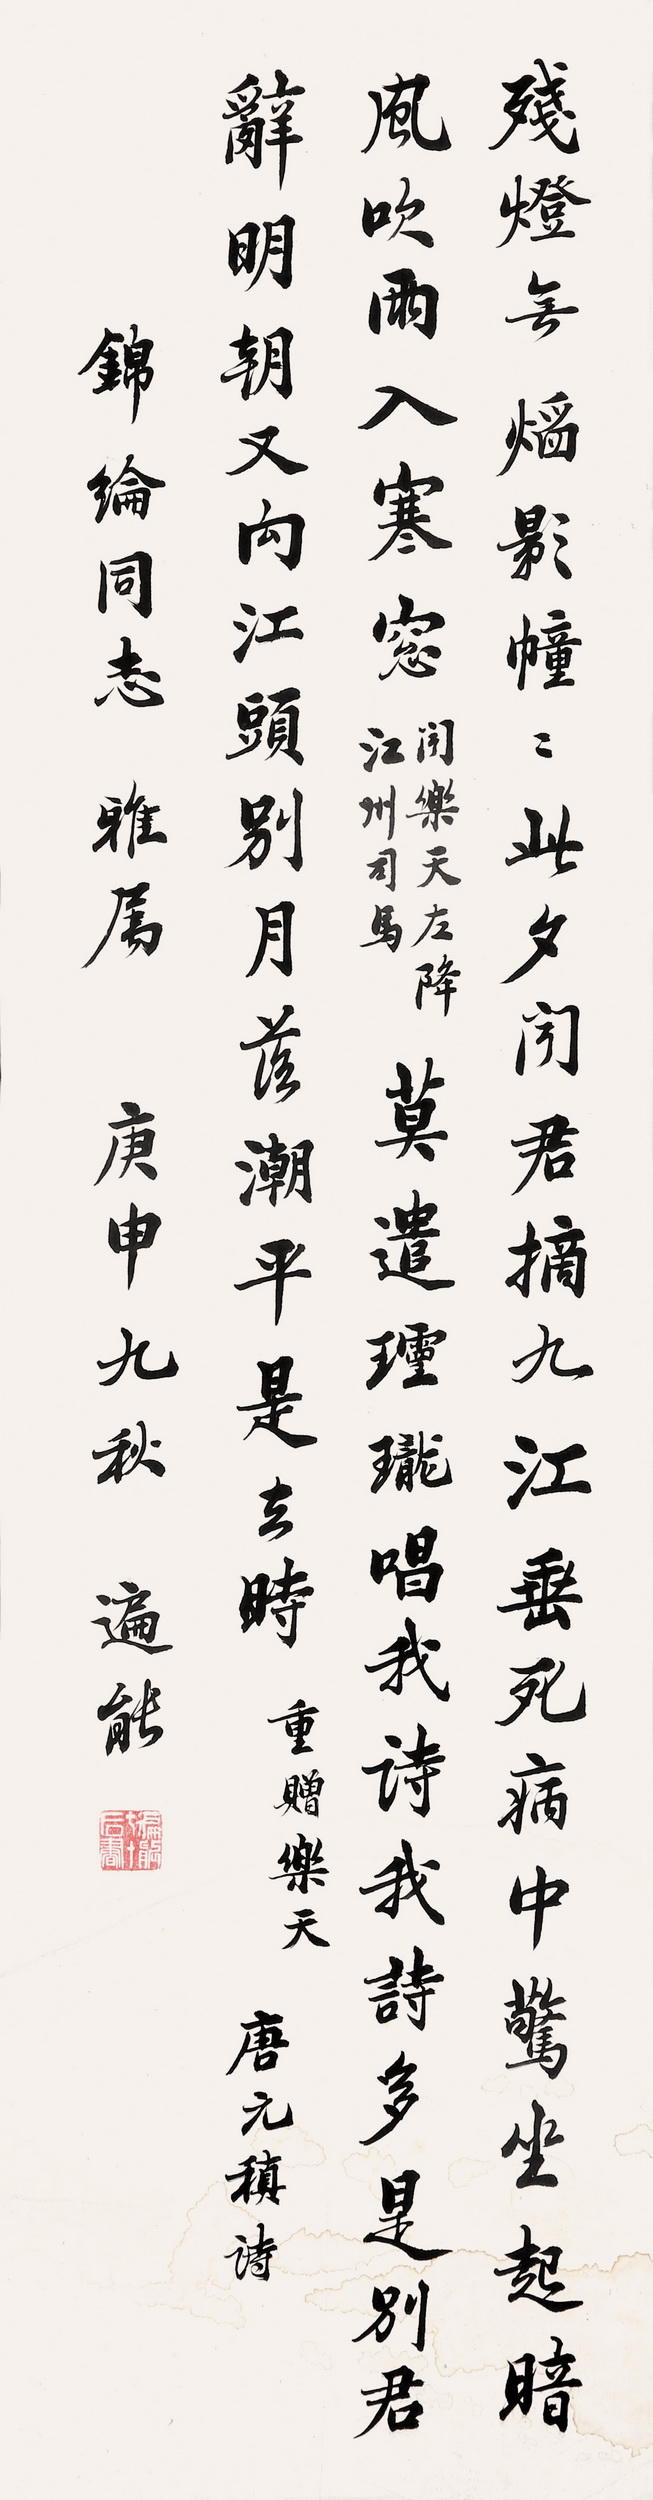 殘燈無熖影幢〻此夕聞君摘九江垂死病中驚坐起暗
風吹雨入寒窓
聞樂天左降
江州司馬
莫遣玲瓏唱我詩我詩多是別君
辭明朝又向江頭別月落潮平是去時
重贈樂天
唐元稹詩
錦綸同志 雅属 庚申九秋 遍能